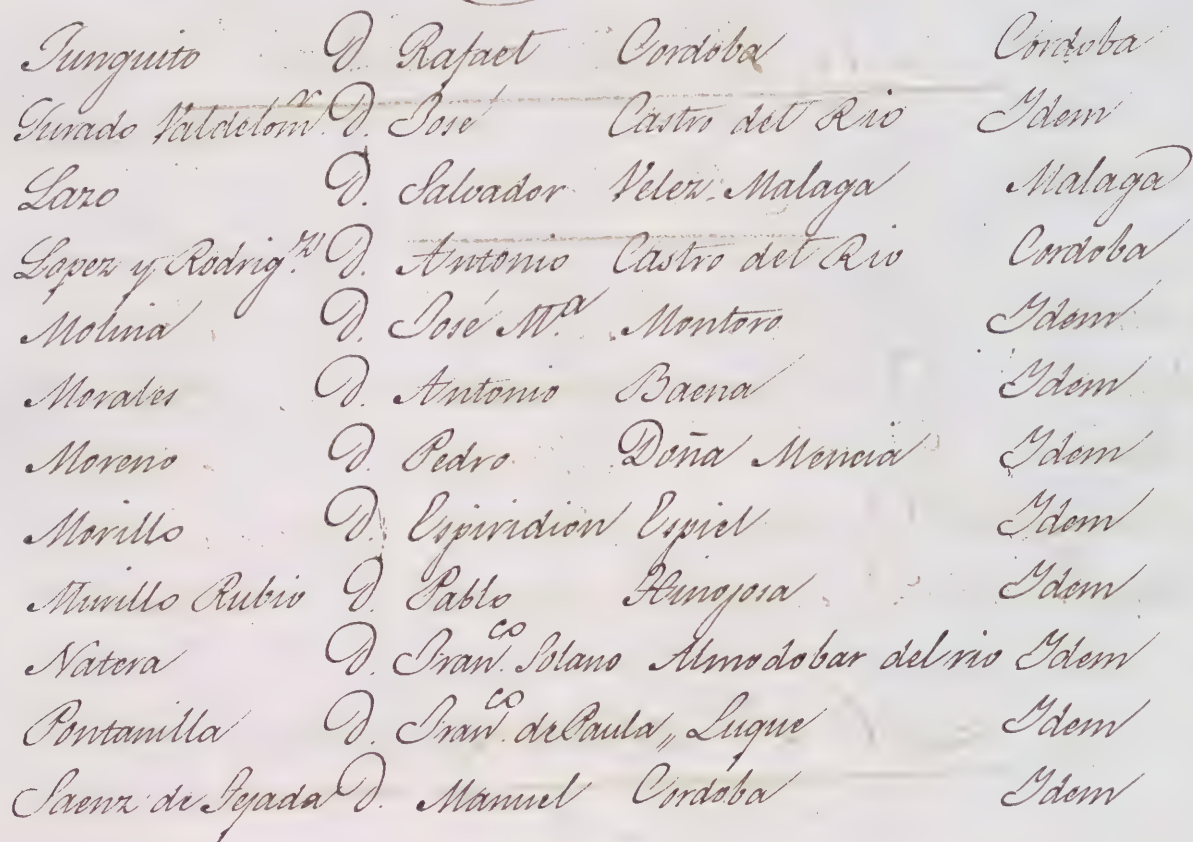 Junguito D. Rafael Cordoba Cordoba
Jurado Valdelom.r D. José Castro del Rio Idem
Lazo D. Salvador Velez-Malaga Malaga
Lopez y Rodrig.z D. Antonio Castro del Rio Cordoba
Molina D. José M.a Montoro Idem
Morales D. Antonio Baena Idem
Moreno D. Pedro Doña Mencia Idem
Morillo D. Espiridion Espiel Idem
Murillo Rubio D. Pablo Hinojosa Idem
Natera D. Fran.co Solano Almodobar del rio Idem
Pontanilla D. Fran.co de Paula „ Luque Idem
Saenz de Tejada D. Manuel Cordoba Idem